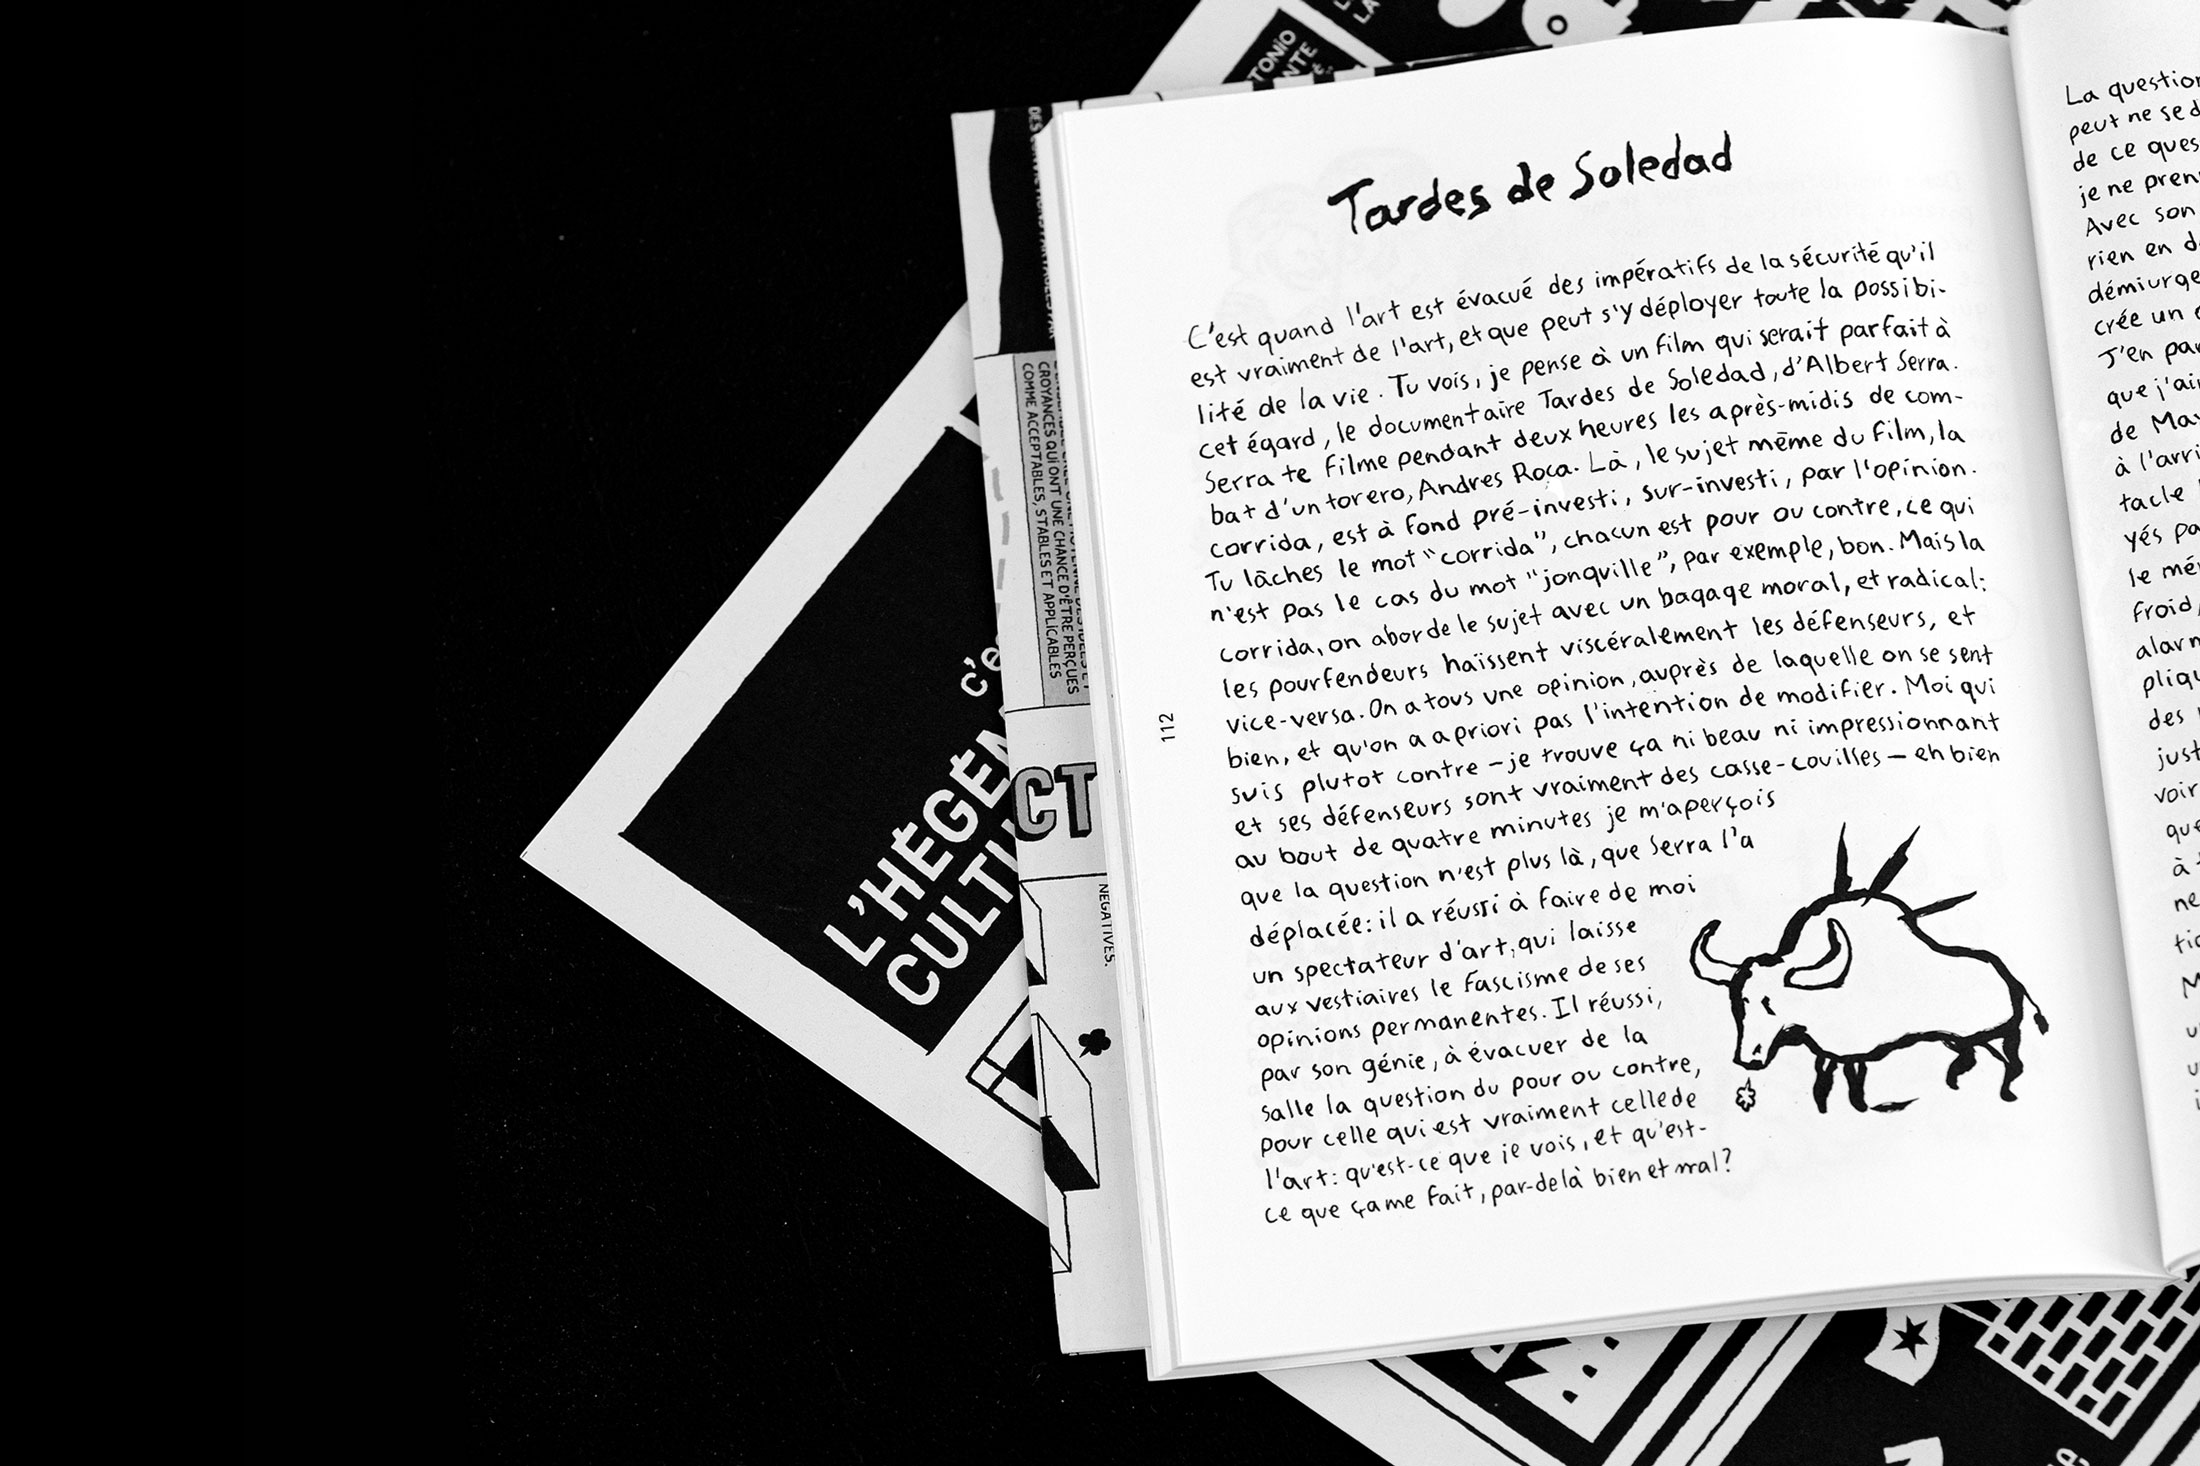 Tardes de Soledad
C'est quand l'art est évacué des impératifs de la sécurité qu'il
est vraiment de l'art, et que peut s'y déployer toute la possibi-
lité de la vie. Tu vois, je pense à un film qui serait parfait à
cet égard, le documentaire Tardes de Soledad, d'Albert Serra.
Serra te filme pendant deux heures les après-midis de com-
bat d'un torero, Andres Roca. Là, le sujet même du film, la
corrida, est à fond pré-investi, sur-investi, par l'opinion.
Tu lâches le mot "corrida", chacun est pour ou contre, ce qui
n'est pas le cas du mot "jonquille", par exemple, bon. Mais la
corrida, on aborde le sujet avec un bagage moral, et radical:
les pourfendeurs haïssent viscéralement les défenseurs, et
vice-versa. On a tous une opinion, auprès de laquelle on se sent
bien, et qu'on a a priori pas l'intention de modifier. Moi qui
suis plutot contre - je trouve ça ni beau ni impressionnant
et ses défenseurs sont vraiment des casse-couilles - eh bien
au bout de quatre minutes je m'aperçois
que la question n'est plus là, que Serra l'a
déplacée: il a réussi à faire de moi
un spectateur d'art, qui laisse
aux vestiaires le fascisme de ses
opinions permanentes. Il réussi,
par son génie, à évacuer de la
salle la question du pour ou contre,
pour celle qui est vraiment celle de
l'art: qu'est-ce que je vois, et qu'est-
ce que ça me fait, par-delà bien et mal?
112
La question
peut ne se d
de ce ques
je ne pren
Avec son
rien en d
démiurge
crée un
J'en par
que j'ai
de Ma
à l'arri
tacle
yés pa
le mé
froid,
alarm
pliqu
des
just
voir
que
à
ne
L'HÉGÉM
CULTU
CROYANCES QUI ONT UNE CHANCE D'ÊTRE PERÇUES
COMME ACCEPTABLES, STABLES ET APPLICABLES
CT
NEGATIVES.